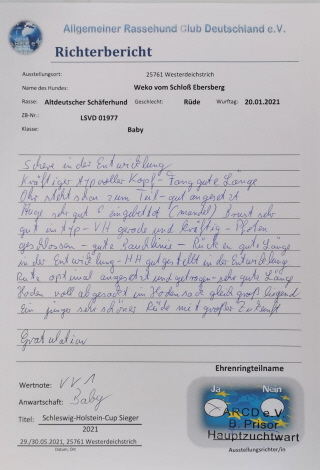 Allgemeiner Rassehund Club Deutschland e.V.
Richterbericht
Ausstellungsort: 25761 Westerdeichstrich
Name des Hundes: Weko vom Schloß Ebersberg
Rasse: Altdeutscher Schäferhund Geschlecht: Rüde Wurftag: 20.01.2021
ZB-Nr.: LSVD 01977
Klasse: Baby
Schere in der Entwicklung
Kräftiger typvoller Kopf - Fang gute Länge
Ohr steht schon zum Teil - gut angesetzt
Auge sehr gut eingebettet (mandel) Brust sehr
gut im typ - VH gerade und kräftig - Pfoten
geschlossen - gute Bauchlinie - Rücken gute Länge
in der Entwicklung - HH gut gestellt in der Entwicklung
Rute optimal angesetzt und getragen - sehr gute Länge
Hoden voll abgesackt im Hodensack gleich groß liegend
Ein junger sehr schöner Rüde mit großer Zukunft
Gratulation
Wertnote: VV1
Anwartschaft: Baby
Titel: Schleswig-Holstein-Cup Sieger
2021
29./30.05.2021, 25761 Westerdeichstrich
Datum, Ort
Ehrenringteilname
Ja Nein
ARCD e.V.
B. Prisor
Hauptzuchtwart
Ausstellungsrichter/in